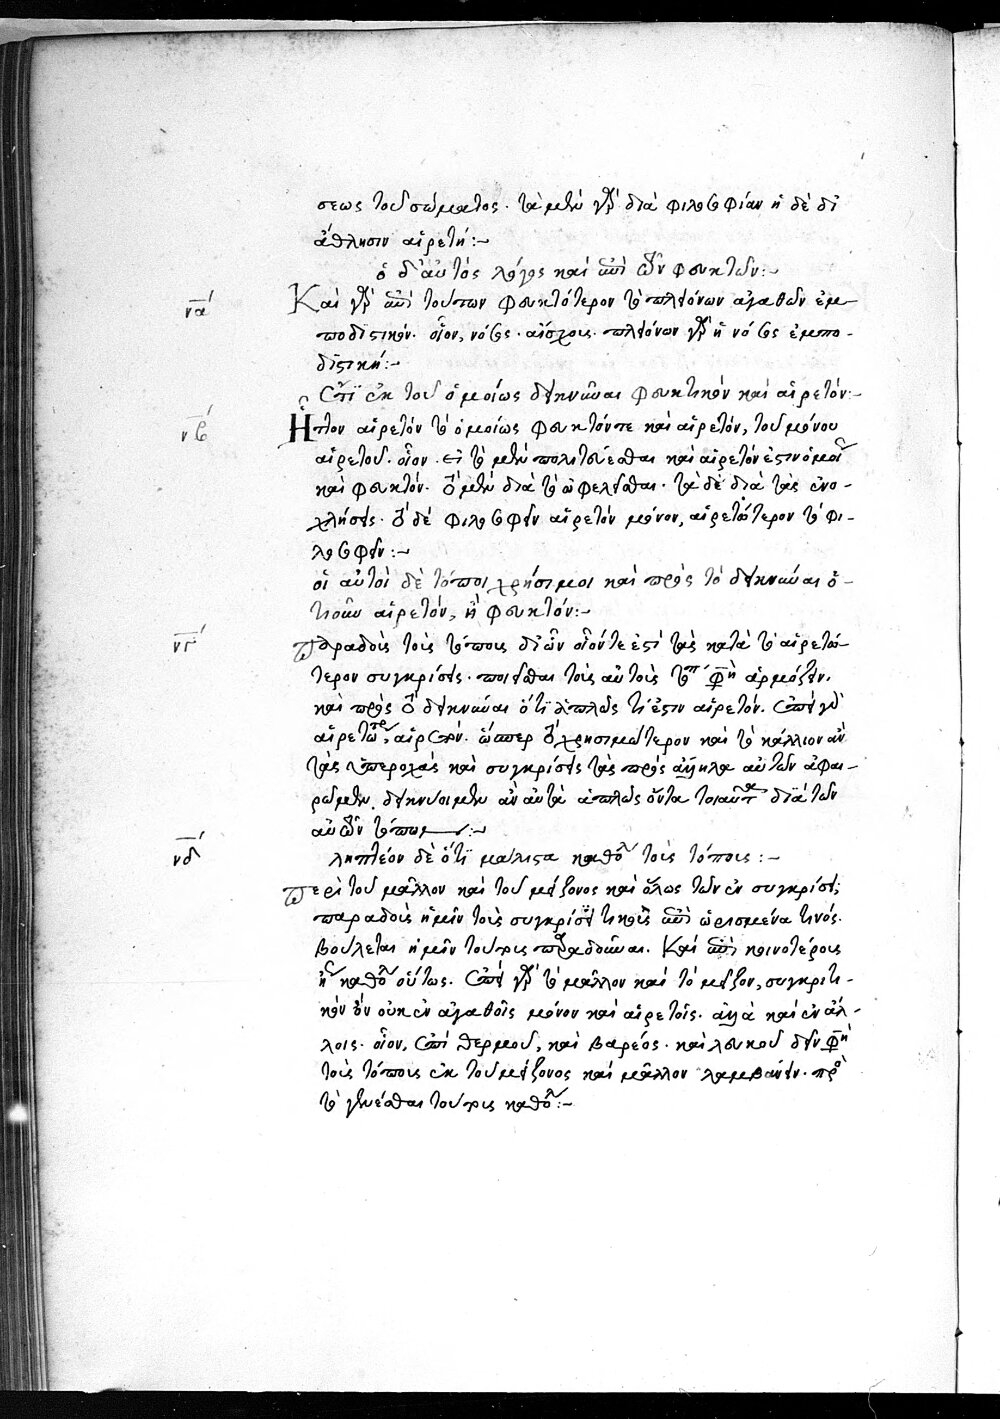 σεως τοῦ σώματος. τὰ μὲν γὰρ διὰ φιλοσοφίαν ἡ δὲ δι
ἄθλησιν αἱρετή:~
ὁ δ' αὐτὸς λόγος καὶ ἐπὶ τῶν φευκτῶν:~
να Καὶ γὰρ ἐπὶ τούτων φευκτότερον τὸ πλειόνων ἀγαθῶν ἐμ-
ποδιστικόν. οἷον, νόσος. αἴσχους. πλειόνων γὰρ ἡ νόσος ἐμπο-
διστική:~
Ἔτι ἐκ τοῦ ὁμοίως δεικνῦναι φευκτικὸν καὶ αἱρετόν:~
νβ Ἧττον αἱρετὸν τὸ ὁμοίως φευκτόν τε καὶ αἱρετόν, τοῦ μόνου
αἱρετοῦ. οἷον. εἰ τὸ μὲν πολιτεύεσθαι καὶ αἱρετόν ἐστιν ὁμοί
καὶ φευκτόν. τὸ μὲν διὰ τὸ ὠφελεῖσθαι. τὰ δὲ διὰ τὰς ἐνο-
χλήσεις. τὸ δὲ φιλοσοφεῖν αἱρετὸν μόνον, αἱρετώτερον τὸ φι-
λοσοφεῖν:~
οἱ αὐτοὶ δὲ τόποι χρήσιμοι καὶ πρὸς τὸ δεικνύναι ὁ-
τιοῦν αἱρετόν, ἢ φευκτόν:~
νγ Παραδοὺς τοὺς τόπους δι' ὧν οἷόν τε ἐστὶ τὰς κατὰ τὸ αἱρετώ-
τερον συγκρίσεις. ποιεῖσθαι τοὺς αὐτοὺς φησὶν ἁρμόζειν.
καὶ πρὸς τὸ δεικνύναι ὅτι ἁπλῶς τί ἐστιν αἱρετόν. ἐπεὶ γὰρ
ὥσπερ τὸ χρησιμώτερον καὶ τὸ κάλλιον ἂν
τὰς ὑπεροχὰς καὶ συγκρίσεις τὰς πρὸς ἄλληλα αὐτῶν ἀφαι-
ρῶμεν. δεικνύοιμεν ἂν αὐτὰ ἁπλῶς ὄντα τοιαῦτα διὰ τῶν
αὐτῶν τόπων:~
νδ ληπτέον δὲ ὅτι μάλιστα καθόλου τοὺς τόπους:~
Περὶ τοῦ μᾶλλον καὶ τοῦ μείζονος καὶ ὅλως τῶν ἐν συγκρίσει,
παραδοὺς ἡμῖν τοὺς συγκρίσει τικοὺς ἐπὶ ὡρισμένα τινός.
βούλεται ἡμῖν τούτους παραδοῦναι. Καὶ ἐπὶ κοινοτέρους
ἢ καθόλου οὕτως. ἐπεὶ γὰρ τὸ μᾶλλον καὶ τὸ μεῖζον, συγκριτι-
κὸν ὂν οὐκ ἐν ἀγαθοῖς μόνον καὶ αἱρετοῖς. ἀλλὰ καὶ ἐν ἄλ-
λοις. οἷον, ἐπὶ θερμοῦ, καὶ βαρέος. καὶ λευκοῦ δεῖν φησὶ
τοὺς τόπους ἐκ τοῦ μείζονος καὶ μᾶλλον λαμβάνειν. πρὸς
τὸ γενέσθαι τούτους καθόλου:~